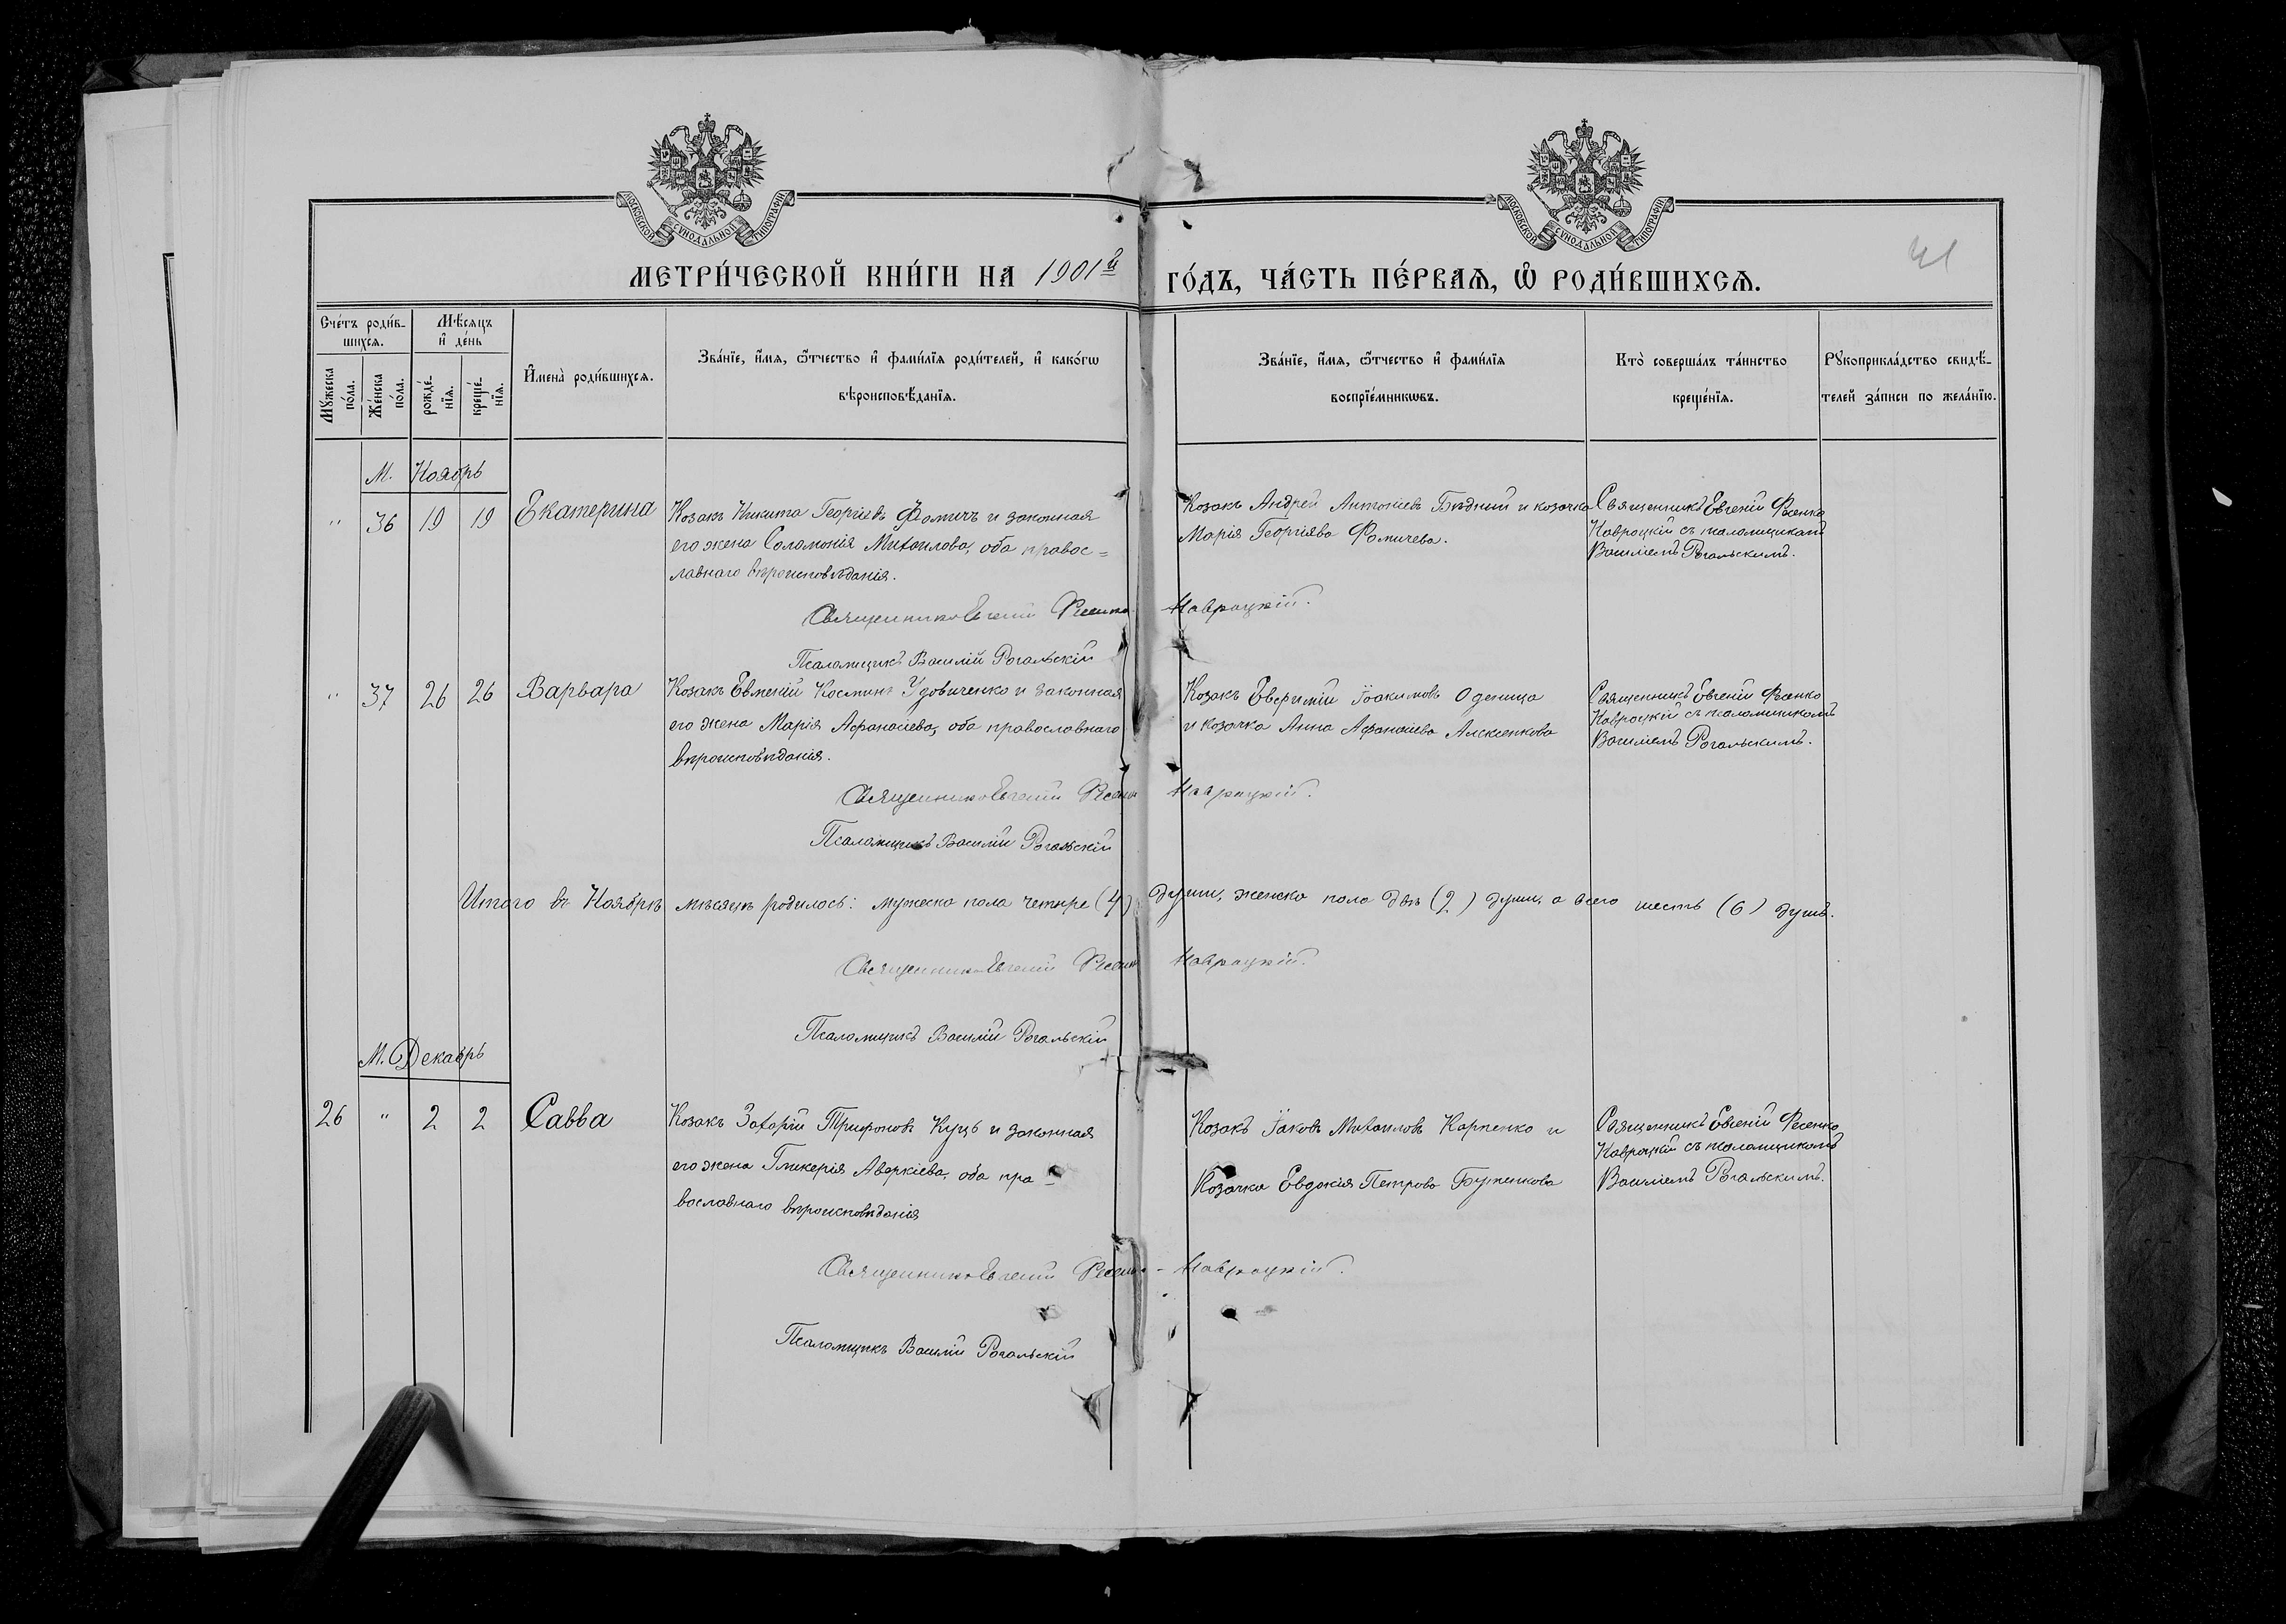 МОСКОВСКОЙ СѴНОДАЛЬНОЙ ТИПОГРАФІИ
МОСКОВСКОЙ СѴНОДАЛЬНОЙ ТИПОГРАФІИ
41
МЕТРИ́ЧЕСКОЙ КНИ́ГИ НА 1901й ГО́ДЪ, ЧА́СТЬ ПЕ́РВАЯ, Ѡ РОДИ́ВШИХСЯ.
Сче́тъ роди́в-
шихся.
Мꙋжеска по́ла.
Же́нска по́ла.
Мѣ́сяцъ
и҆ де́нь
рожде́-
нїя.
креще́-
нїя.
И҆мена̀ роди́вшихся.
Зва́нїе, и҆́мя, ѻ҆́тчество и҆ фами́лїя роди́телей, и҆ како́гѡ
вѣроисповѣ́данїя.
Зва́нїе, и҆́мя, ѻ҆́тчество и҆ фами́лїя
воспрїе́мникѡвъ.
Кто̀ соверша́лъ та́инство
креще́нїя.
Рꙋкоприкла́дство свидѣ́-
телей за́писи по жела́нїю.
М. Ноябрь
" 36 19 19 Екатерина
Козакъ Никита Георгіевъ Фомичъ и законная
его жена Соломонія Михаилова, оба правос=
лавнаго вѣроисповѣданія.
Козакъ Андрей Антоніевъ Бѣдный и козачка
Марія Георгіява Фомичева.
Священникъ Евгеній Фесенко
Навроцкій съ псаломщикомъ
Василіемъ Рогальскимъ.
Священникъ Евгеній Фесенко-Навроцкій.
Псаломщикъ Василій Рогальскій
" 37 26 26 Варвара
Козакъ Евменій Косминъ Удовиченко и законная
его жена Марія Афанасіева, оба православнаго
вѣроисповѣданія.
Козакъ Евфимій Іоакимовъ Оденица
и козачка Анна Афанасіева Алексенкова
Священникъ Евгеній Фесенко
Навроцкій съ псаломщикомъ
Василіемъ Рогальскимъ.
Священникъ Евгеній Фесенко Навроцкій.
Псаломщикъ Василій Рогальскій
Итого въ Ноябрѣ мѣсяцѣ родилось: мужеска пола четыре (4) души, женска пола двѣ (2) души, а всего шесть (6) душъ.
Священникъ Евгеній Фесенко Навроцкій.
Псаломщикъ Василій Рогальскій
М. Декабрь
26 " 2 2 Савва
Козакъ Захарій Трифоновъ Куцъ и законная
его жена Гликерія Аверкіева, оба пра-
вославнаго вѣроисповѣданія
Козакъ Іаковъ Михаиловъ Карпенко и
Козачка Евдокія Петрова Буженкова
Священникъ Евгеній Фесенко
Навроцкій съ псаломщикомъ
Василіемъ Рогальскимъ.
Священникъ Евгеній Фесенко-Навроцкій.
Псаломщикъ Василій Рогальскій